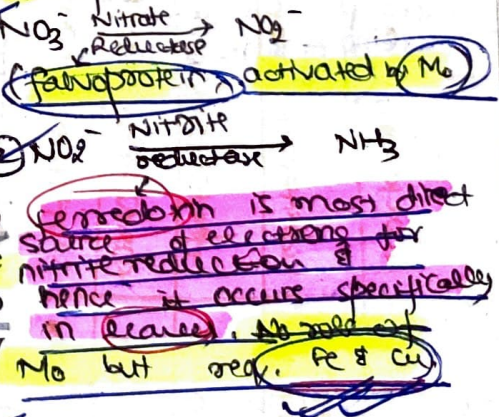 NO3⁻ Nitrate Reductase → NO2⁻
(falvoprotein, activated by Mo)
NO2⁻ Nitrite reductase → NH3
ferredoxin is most direct
source of electrons for
nitrite reduction &
hence it occurs specifically
in leaves. No role of
Mo but req. Fe & Cu